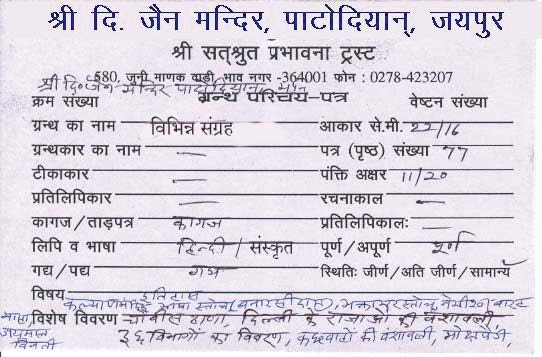 श्री दि. जैन मन्दिर, पाटोदियान्, जयपुर
श्री सत्श्रुत प्रभावना ट्रस्ट
580, जुनी माणक वाडी, भाव नगर -364001 फोन : 0278-423207
श्री दि० जैन मन्दिर पाटोदियान
क्रम संख्या ग्रन्थ परिचय-पत्र वेष्टन संख्या
ग्रन्थ का नाम विभिन्न संग्रह आकार से.मी. 22/16
ग्रन्थकार का नाम — पत्र (पृष्ठ) संख्या 77
टीकाकार — पंक्ति अक्षर 11/20
प्रतिलिपिकार — रचनाकाल —
कागज/ताड़पत्र कागज प्रतिलिपिकालः —
लिपि व भाषा हिन्दी/संस्कृत पूर्ण/अपूर्ण पूर्ण
गद्य/पद्य गद्य स्थितिः जीर्ण/अति जीर्ण/सामान्य
विषय इतिहास
कल्याणमंदिर भाषा स्तोत्र (बनारसीदास), भक्तामर स्तोत्र,
विशेष विवरण चौबीस ठाणा, दिल्ली के राजाओं की वंशावली,
36 विभागों का विवरण, कछवाहों की वंशावली, मोक्षपैडी,
माला
जयमल
विनती